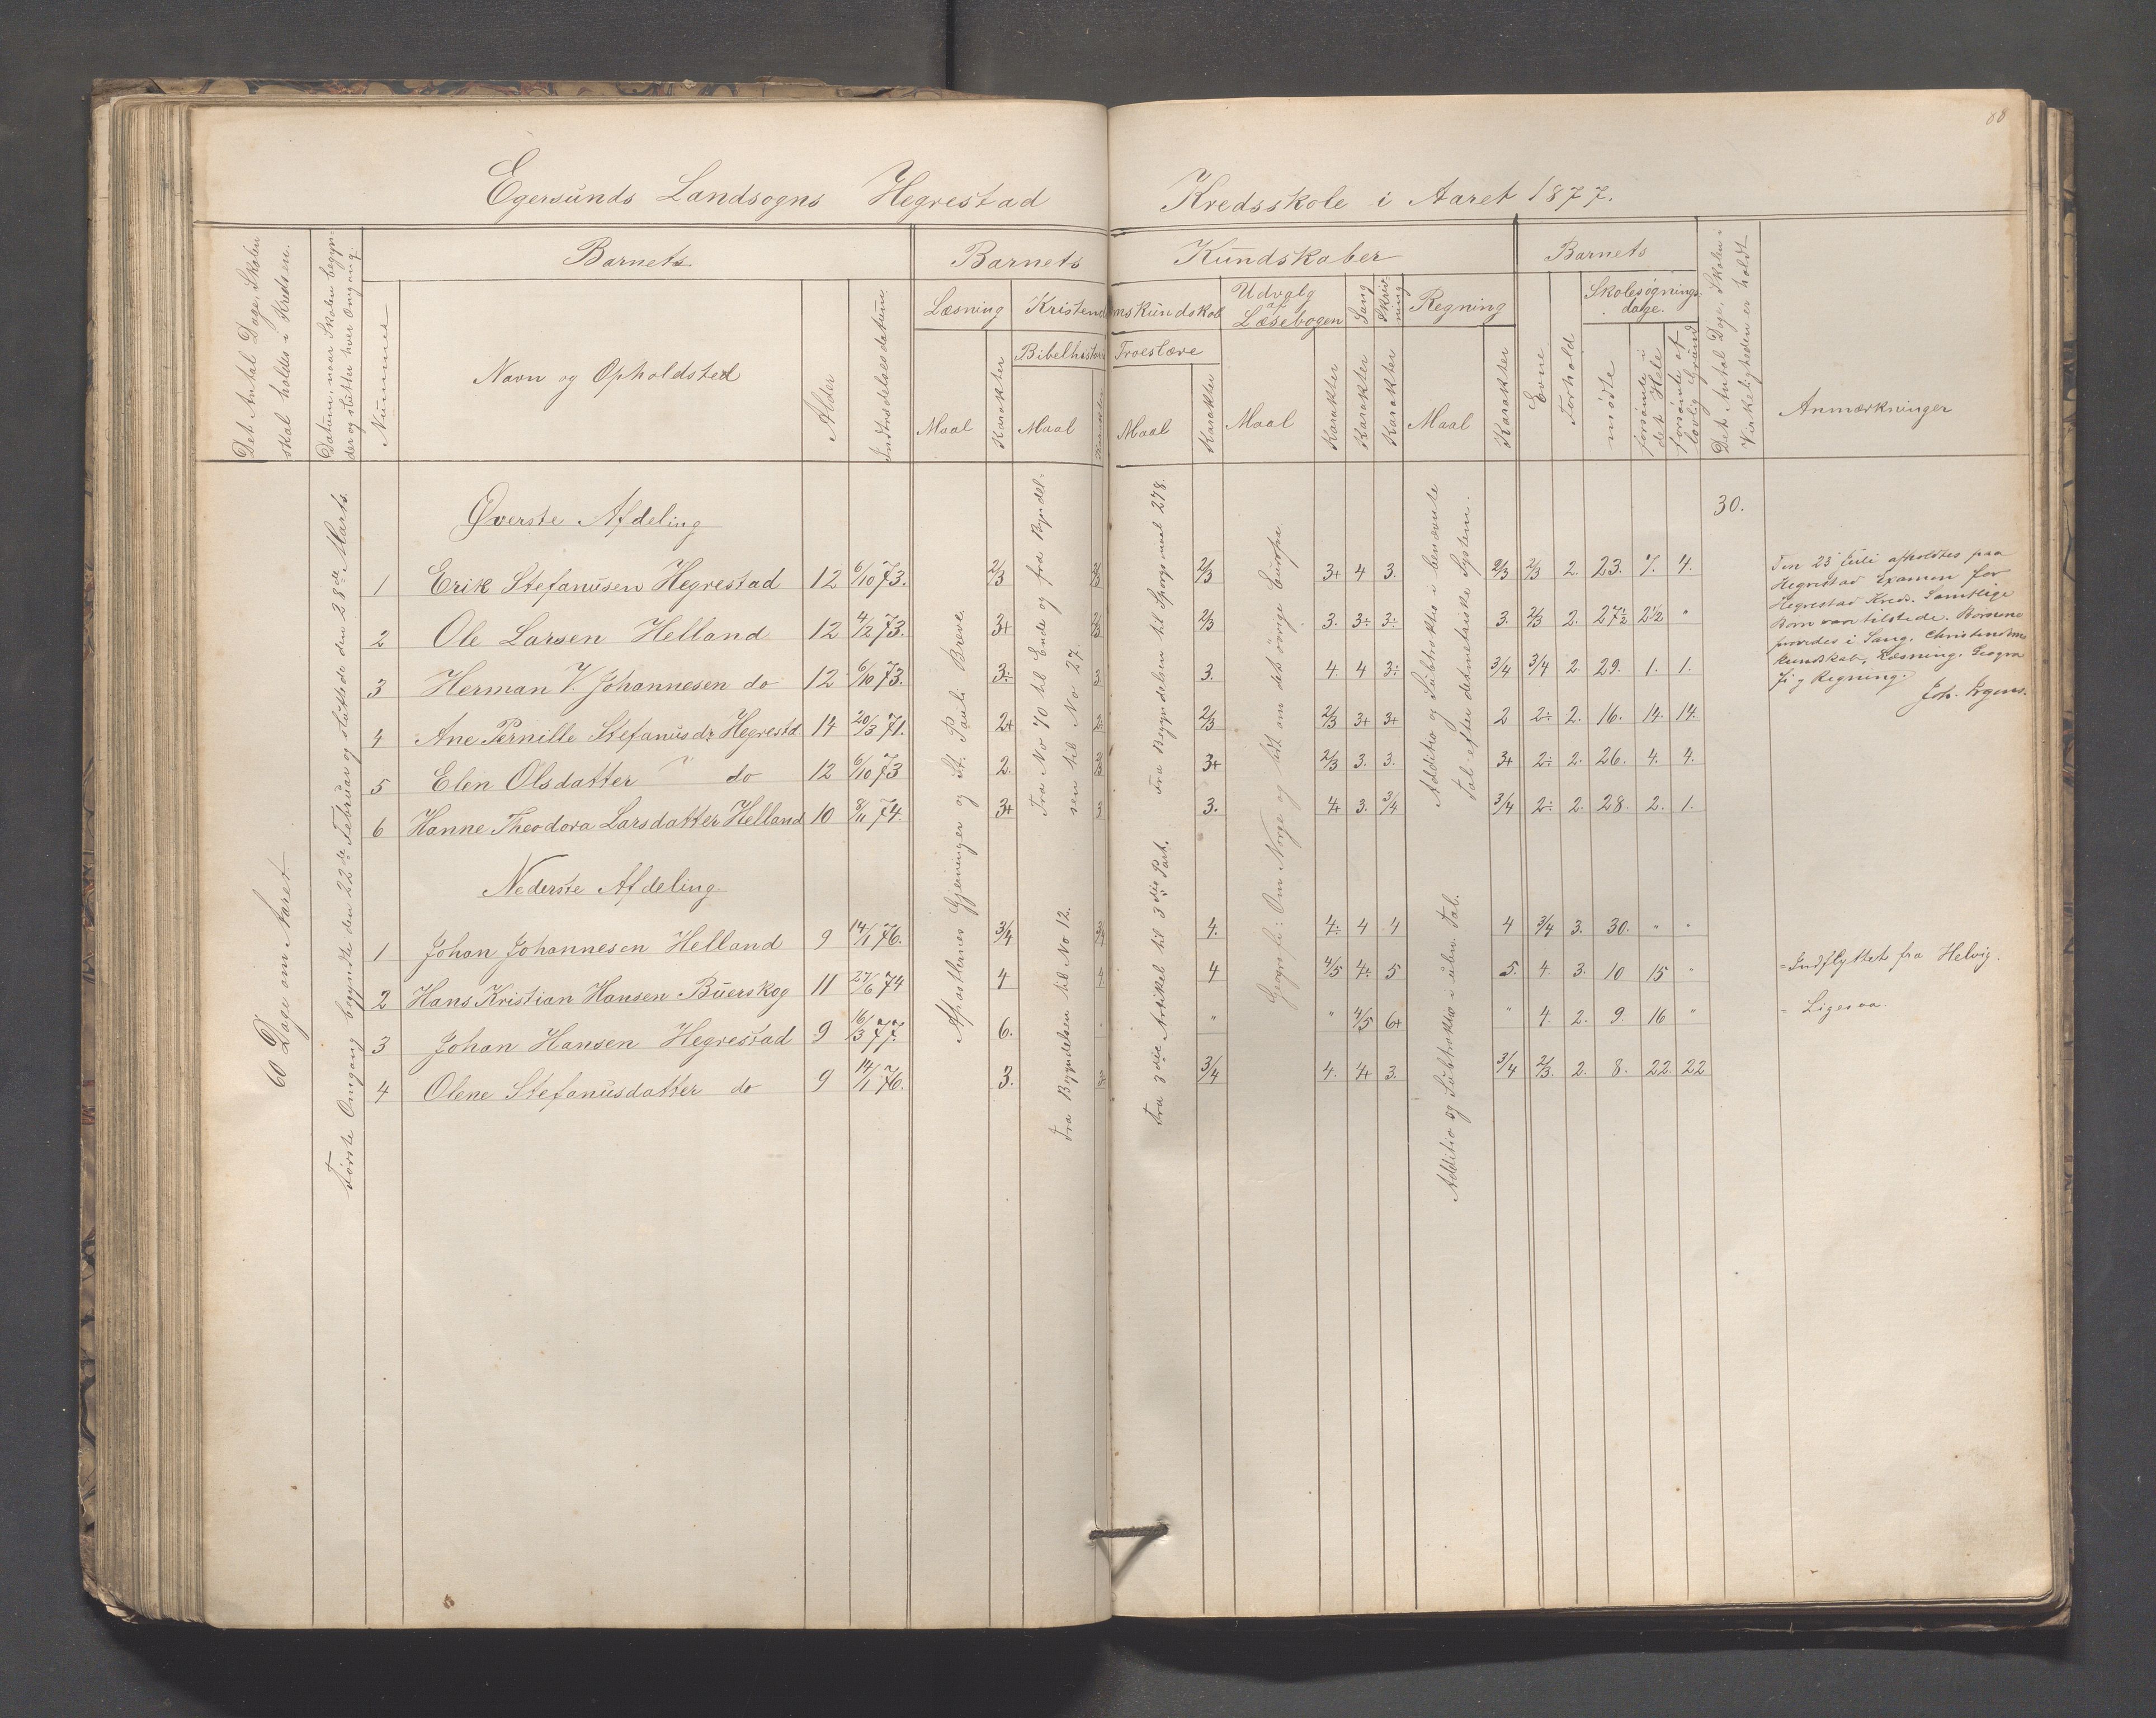 88
Egersunds Landsogns Hegrestad Kredsskole i Aaret 1877.
Det Antal Dage, Skolen skal holdes i Kredsen.
Datum, naar Skolen begynder og slutter hver Omgang.
Barnets
Barnets Kundskaber
Barnets
Det Antal Dage, Skolen i Virkeligheden er holdt
Nummer
Navn og Opholdsted
Alder
Indtrædelsesdatum
Læsning
Kristendomskundskab
Udvalg af Læsebogen
Sang
Skrivning
Regning
Evne
Forhold
Skolesøgningsdage.
Bibelhistorie
Troeslære
Maal
Karakter
Maal
Karakter
Maal
Karakter
Maal
Karakter
Karakter
Karakter
Maal
Karakter
mødte
forsømte i det Hele
forsømte af lovlig Grund
Anmærkninger
60 Dage om Aaret
Første Omgang begyndte den 22de Februar og sluttede den 28de Marts.
Øverste Afdeling
30.
1 Erik Stefanusen Hegrestad 12 6/10 73. 2/3 2/3 2/3 3+ 4 3. 2/3 2/3 2. 23. 7. 4.
2 Ole Larsen Helland 12 4/12 73. 3+ 2/3 2/3 3. 3÷ 3÷ 3. 2/3 2. 27½ 2½ "
3 Herman V. Johannesen do 12 6/10 73. 3÷ 3 3. 4. 4 3÷ 3/4 3/4 2. 29. 1. 1.
4 Ane Pernille Stefanusdr. Hegrestd. 14 20/3 71. 2+ 2. 2/3 2/3 3+ 3+ 2 2÷ 2. 16. 14. 14.
5 Elen Olsdatter do 12 6/10 73 2. 3+ 2/3 3. 3. 3+ 2÷ 2. 26. 4. 4.
6 Hanne Theodora Larsdatter Helland 10 8/11 74. 3+ 3 3. 4+ 3. 3/4 3/4 2÷ 2. 28. 2. 1.
Nederste Afdeling.
1 Johan Johannesen Helland 9 14/1 76. 3/4 3/4 4. 4÷ 4 4 4 3/4 3. 30. " "
2 Hans Kristian Hansen Buerskog 11 27/6 74 4 4. 4 4/5 4÷ 5 5. 4. 3. 10 15 " Indflyttet fra Helvig.
3 Johan Hansen Hegrestad 9 16/3 77. 6. " " " 4/5 6+ " 4. 2. 9. 16 " Ligesaa.
4 Olene Stefanusdatter do 9 14/1 76. 3. 3 3/4 4. 4+ 3. 3/4 2/3. 2. 8. 22. 22
Apostlernes Gjerninger og St. Pauli Breve.
Fra No 70 til Ende og fra Begyndelsen til No 27.
Fra Begyndelsen til No 12.
Fra Begyndelsen til Spørgsmaal 278.
Fra 3die Artikel til 3die Part.
Geografi: Om Norge og lidt om det øvrige Europa.
Additio og Subtraktio i benævnte Tal efter detmetriske System.
Additio og Subtraktio i ubn. Tal.
Den 23 Juli afholdtes paa
Hegrestad Examen for
Hegrestad Kreds. Samtlige
Børn var tilstede. Børnene
prøvedes i Sang, Christendoms
kundskab, Læsning, Geogra
fi og Regning.
Joh. Irgens.